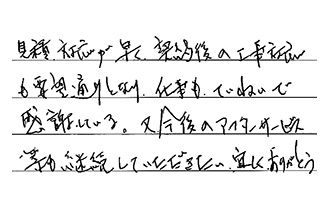 見積対応が早く、契約後の工事対応
も要望通りしなり、仕事も、ていねいで
感謝している。又今後のアフターサービス
等も継続していただきたい、宜しくありがとう